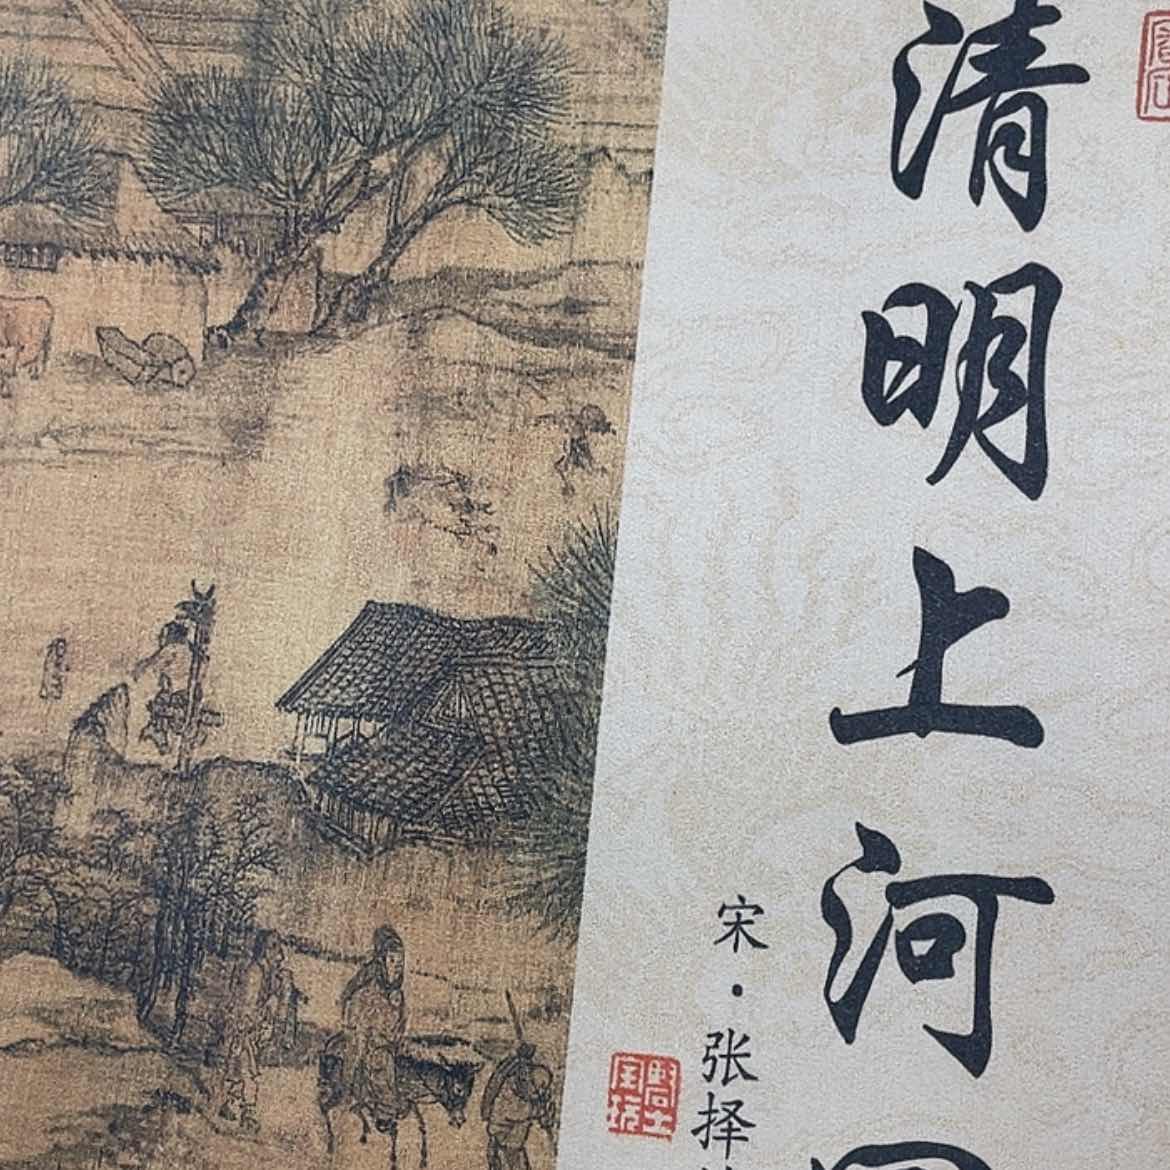 清明上河
宋·张择